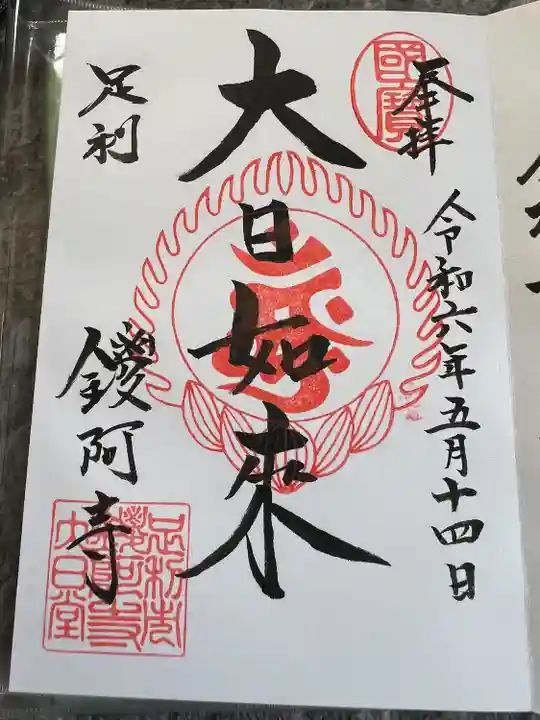 奉拝
國寳
令和六年五月十四日
大日如来
足利
鑁阿寺